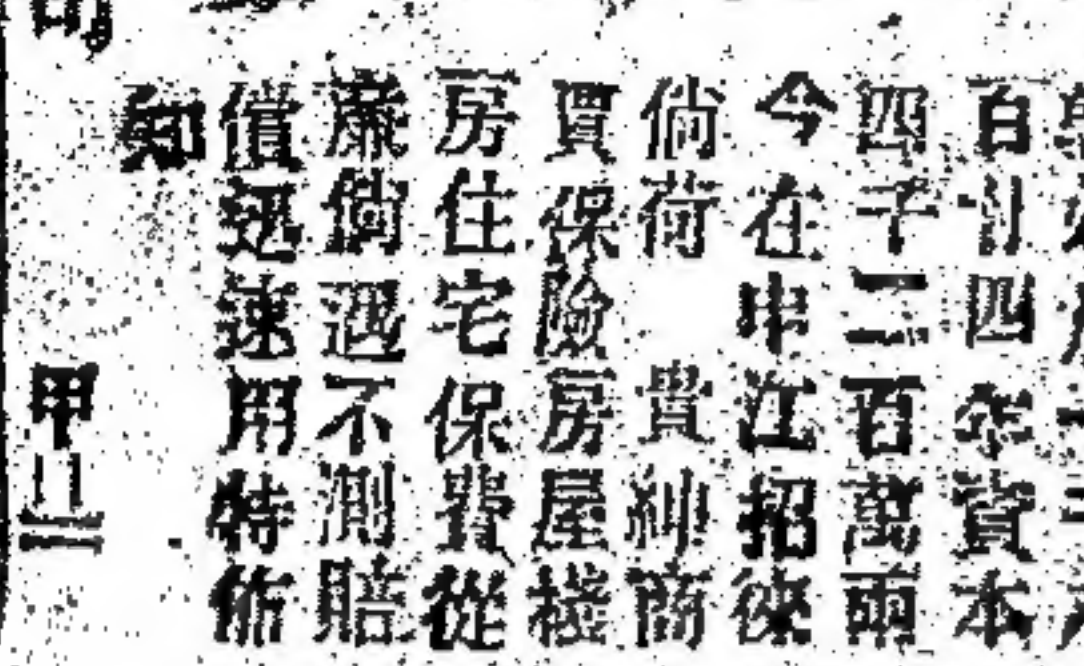 百引四年資本
四千二百萬兩
今在申江招徠
倘荷　貴紳商
買保險房屋棧
房住宅保費從
廉倘遇不測賠
償迅速用特佈
知
甲